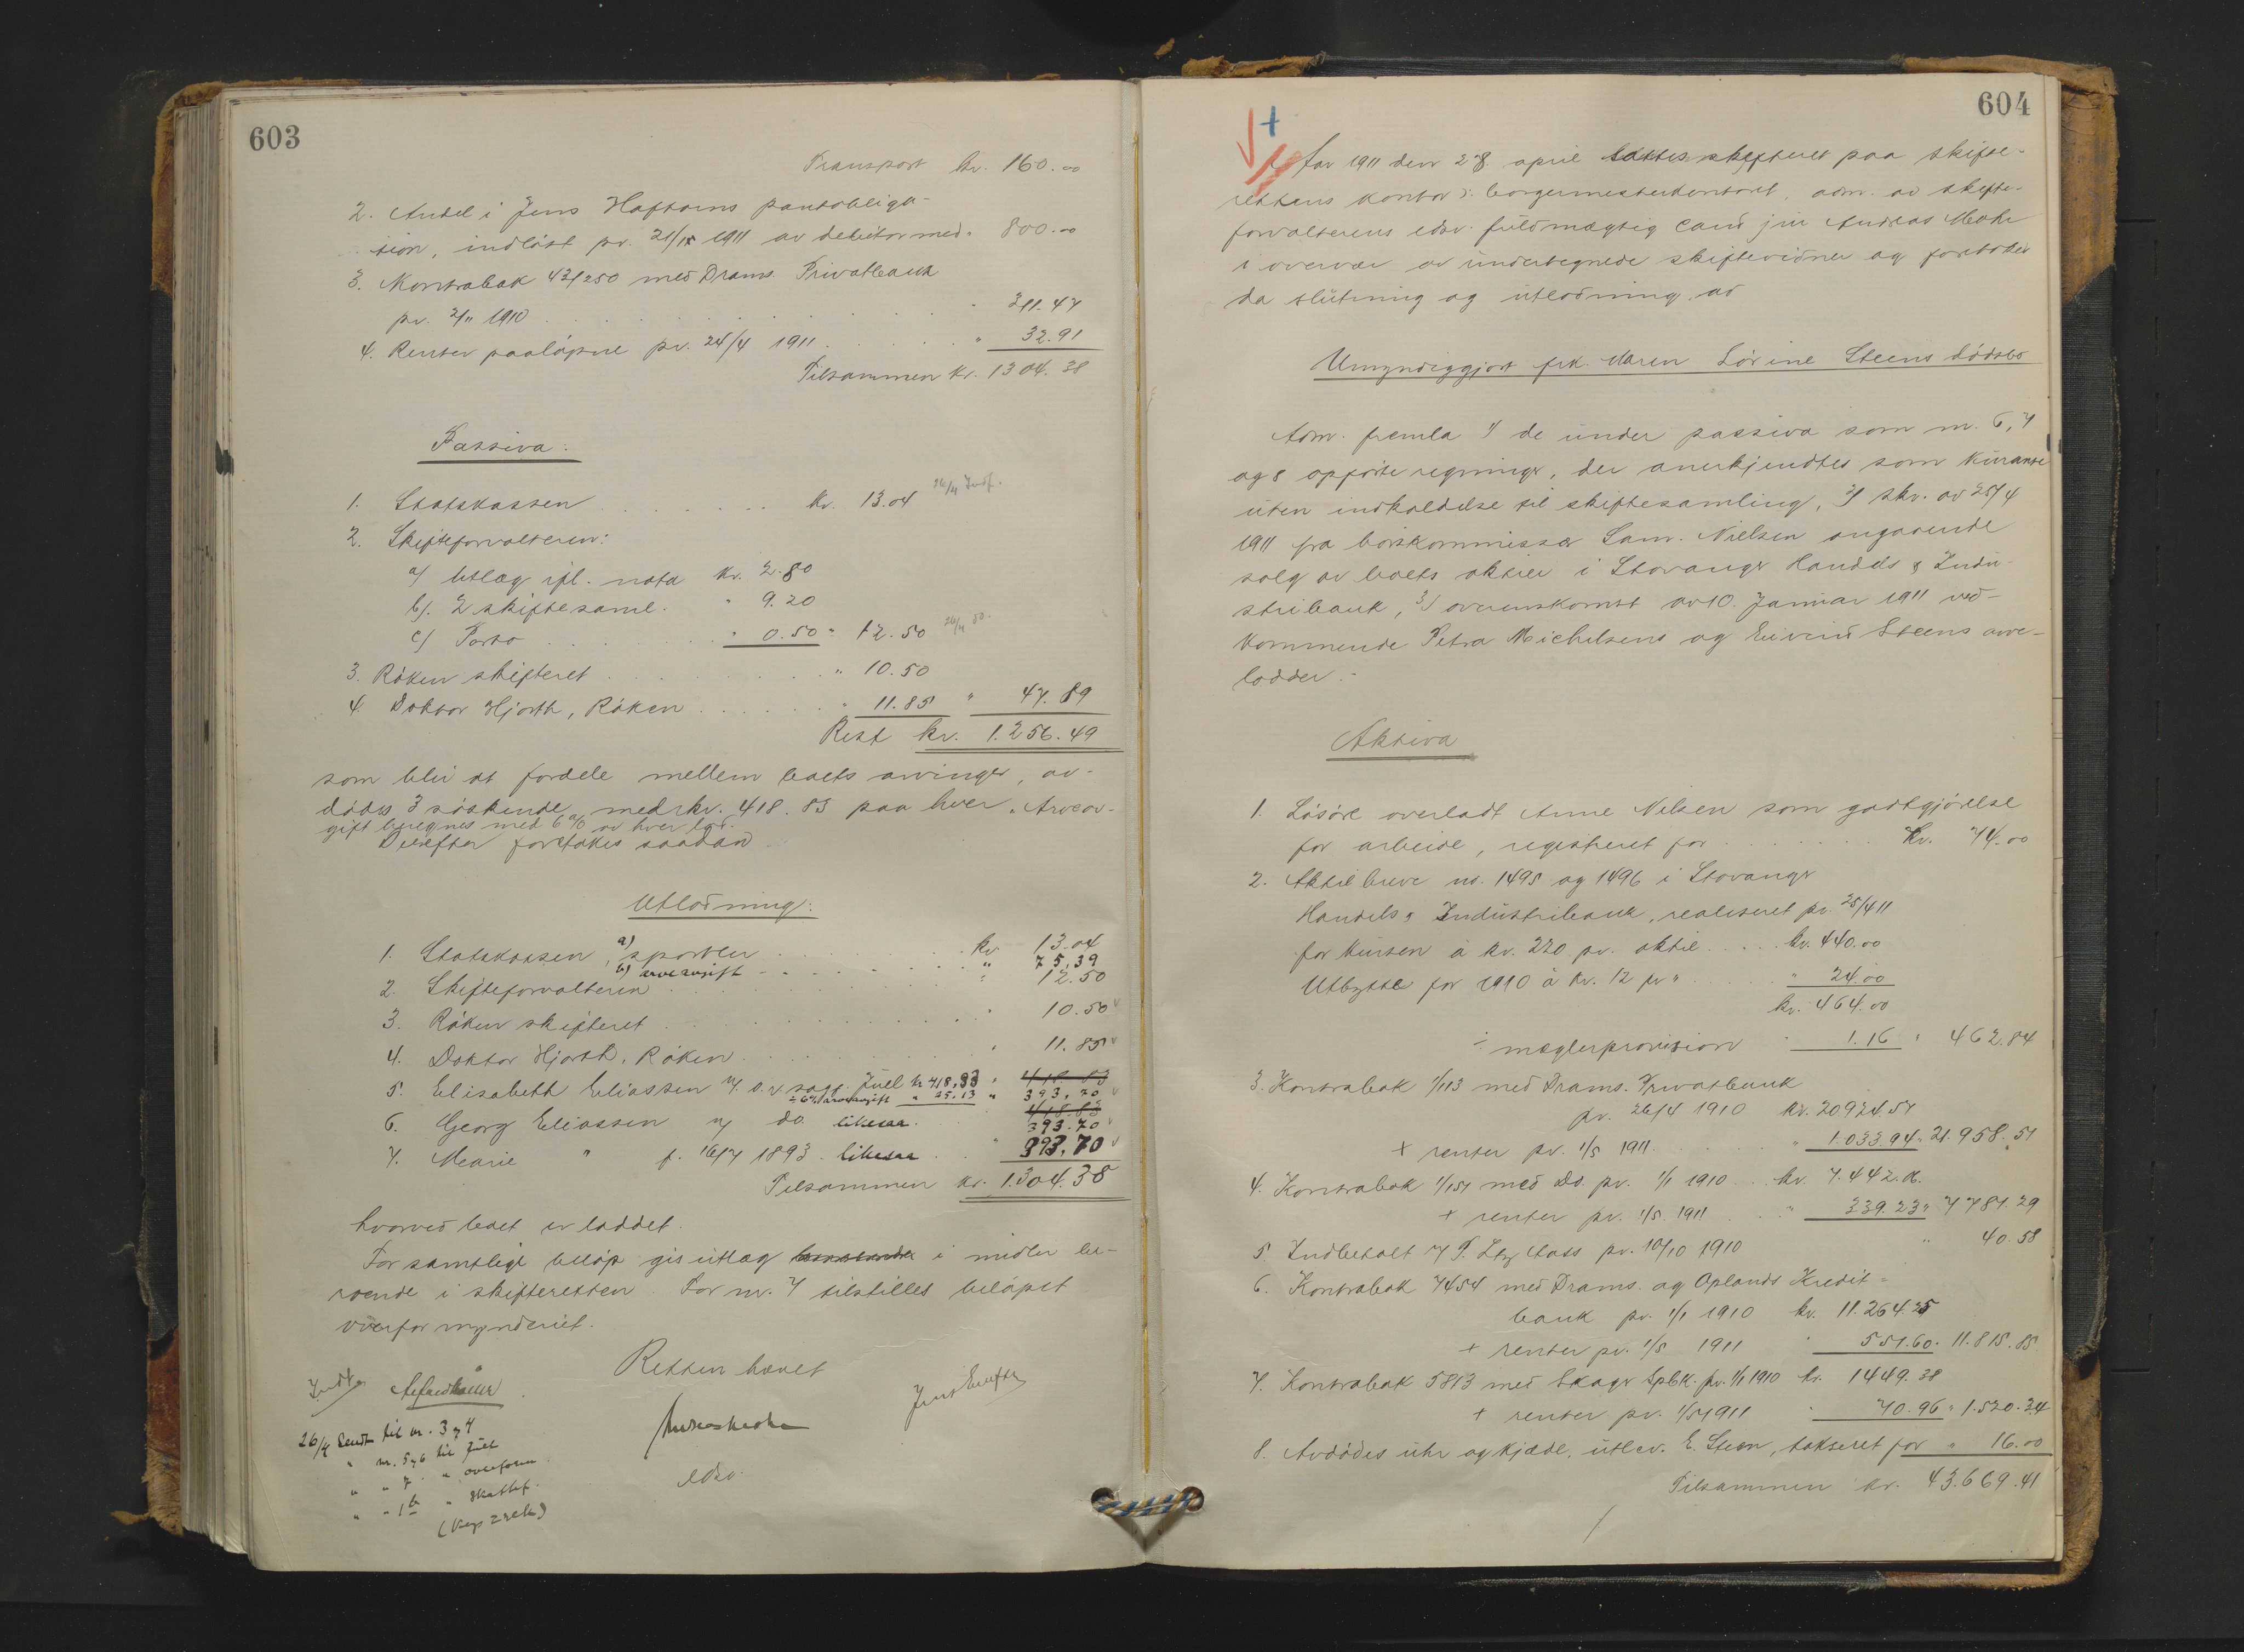 603
Transport kr. 160.00
2. Andel i Jens Haftorns pantobliga-
tion, indløst pr. 21/ 1911 av debitor med " 800.00
3. Kontrabok 43/250 med Drams. Privatbank
pr. 2/11 1910 . . . . . " 311.47
4. Renter paaløpne pr. 24/4 1911 . . . . . " 32.91
Tilsammen kr. 1304.38
Passiva:
1. Statskassen . . . . . kr. 13.04 26/4 Indf.
2. Skifteforvalteren:
a) Utlæg ifl. nota kr. 2.80
b). 2 skiftesaml. " 9.20
c) Porto . . . " 0.50 " 12.50 26/4
3. Røken skifteret . . . . . " 10.50
4. Doktor Hjorth, Røken . . . . . " 11.85 " 47.89
Rest kr. 1.256.49
som blir at fordele mellem boets arvinger, av-
dødes 3 søskende, med kr. 418.83 paa hver. Arveav-
gift beregnes med 6 % av hver lod.
Derefter foretokes saadan
Utlodning:
1. Statskassen, a) sportler . . . . . kr. 13.04
b) arveavgift - - - - " 75,39
2. Skifteforvalteren . . . . . " 12.50
3. Røken skifteret . . . . . " 10.50
4. Doktor Hjorth, Røken . . . . . " 11.85
5. Elisabeth Eliassen v. o.r.sagf. Juell kr 418,83 " 418.83
÷ 6% arveavgift " 25.13 " 393,70
6. Georg Eliassen v do. likesaa . . 418.83
393.70
7. Marie " f. 16/7 1893. likesaa . . " 393.70
Tilsammen kr. 1.304.38
hvorved boet er loddet.
For samtlige beløp gis utlæg i midler be-
roende i skifteretten. For nr. 7 tilstilles beløpet
overformynderiet.
Retten hævet
Andreas Mohr
edsv.
26/4 Sendt til nr. 3 og 4
" nr. 5 og 6 til Juell
" " 7 " overform.
" " 1 b " Skattef.
604
Aar 1911 den 28. april sattes skifteret paa skifte-
rettens kontor i borgermesterkontoret, adm. av skifte-
forvalterens edsv. fuldmægtig cand jur Andreas Mohr
i overvær av undertegnede skiftevidner og foretokes
da slutning og utlodning av
Umyndiggjort frk. Maren Lovine Steens dødsbo
Adm. fremla 1) de under passiva som nr. 6, 7
og 8 opførte regninger, der anerkjendtes som kurante
uten indkaldelse til skiftesamling, 2) skr. av 25/4
1911 fra børskommissær Sam. Nielsen angaaende
salg av boets aktier i Stavanger Handels & Indu-
stribank, 3) overenskomst av 10. Januar 1911 ved-
kommende Petra Michelsens og Eivind Steens arve-
lodder.-
Aktiva
1. Løsøre overladt Anne Nilsen som godtgjørelse
for arbeide, registreret for . . . . . Kr. 74.00
2. Aktiebreve nr. 1495 og 1496 i Stavanger
Handels & Industribank, realiseret pr. 25/4 11
for kursen à kr. 220 pr. aktie . . . . kr. 440.00
Utbytte for 1910 à kr. 12 pr " . . . . " 24.00
kr. 464.00
÷ mæglerprovision " 1.16 " 462.84
3. Kontrabok 1/113 med Drams. Privatbank
pr. 26/4 1910 kr. 20924.57
+ renter pr. 1/5 1911 . . . . " 1.033.94 " 21.958.51
4. Kontrabok 1/151 med do. pr. 1/1 1910 . . kr. 7.442.06
+ renter pr. 1/5 1911 . . " 339.23 " 7781.29
5. Indbetalt v P. Ltz Aass pr. 10/10 1910 " 40.58
6. Kontrabok 7454 med Drams. og Oplands Kredit-
bank pr. 1/1 1910 kr. 11.264.25
+ renter pr. 1/5 1911 " 551.60 " 11.815.85
7. Kontrabok 5813 med Skoger Spbk. pr. 1/1 1910 kr. 1449.38
+ renter pr. 1/5 1911 " 70.96 " 1.520.34
8. Avdødes uhr og kjæde, utlev. E. Steen, takseret for " 16.00
Tilsammen kr. 43.669.41